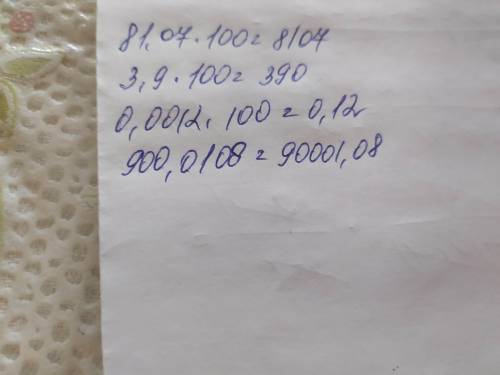 81,07 · 100 = 8107
3,9 · 100 = 390
0,0012 · 100 = 0,12
900,0108 = 90001,08